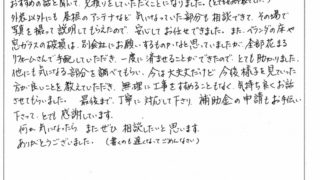 おすすめの話を聞いて、見積りをしていただくことになりました。
外装以外にも、屋根のアンテナなど気になっていた部分も相談でき、その場で
写真を撮って説明してもらえたので、安心してお任せできました。また、ベランダの床や
窓ガラスの破損は、別会社にお願いするものかなと思っていましたが、全部花まる
リフォームさんで手配していただき、一度に済ませることができたので、とても助かりました。
他にも気になる部分を調べてもらい、今は大丈夫だけど今後様子を見ていった
方が良いことを教えていただき、無理に工事をすすめることもなく、気持ち良くお話
させてもらいました。最後まで、丁寧に対応して下さり、補助金の申請もお手伝い
下さって、とても感謝しています。
何か気になったら、またぜひ相談したいと思います。
ありがとうございました。(書くのも遅くなってごめんなさい)